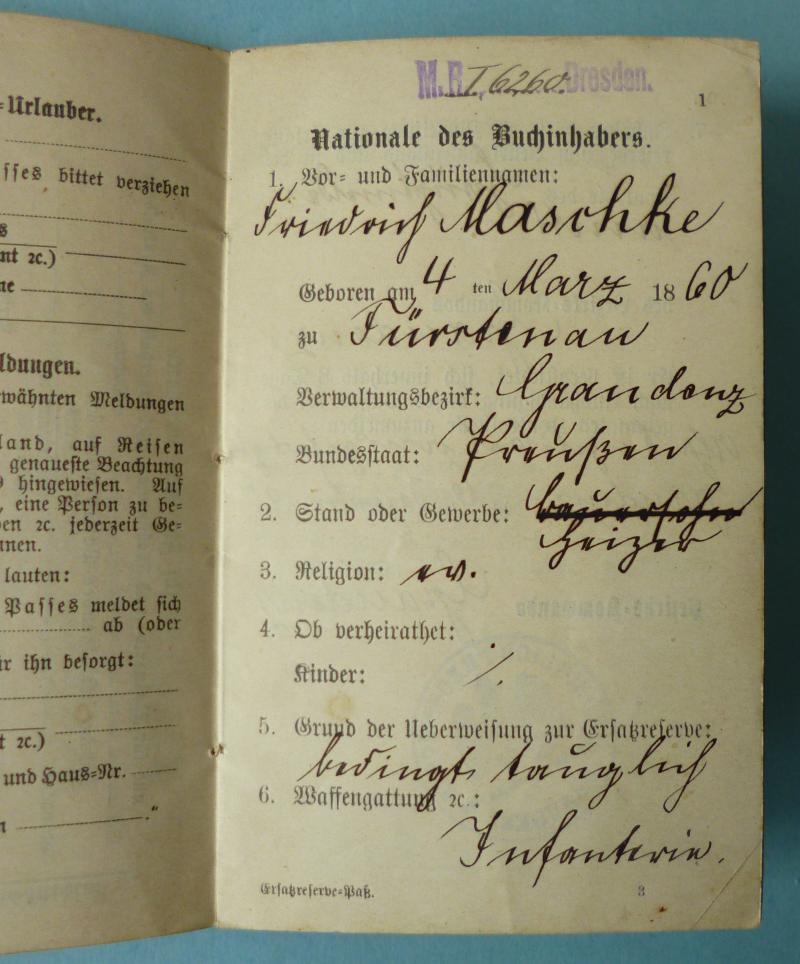 =Urlauber.
sses bittet verziehen
s
nt ꝛc.)
ne
ldungen.
wähnten Meldungen
land, auf Reisen
genaueste Beachtung
9 hingewiesen. Auf
, eine Person zu be=
en ꝛc. jederzeit Ge=
nnen.
lauten:
Passes meldet sich
ab (oder
ür ihn besorgt:
t ꝛc.)
und Haus=Nr.
n ."
M.R. I, 6260. Dresden.
1
Nationale des Buchinhabers.
1. Vor= und Familiennamen:
Friedrich Maschke
Geboren am 4 ten März 1860
zu Fürstenau
Verwaltungsbezirk: Graudenz
Bundesstaat: Preußen
2. Stand oder Gewerbe: Bauersohn
Heizer
3. Religion: ev.
4. Ob verheirathet:
Kinder: ⁒
5. Grund der Ueberweisung zur Ersatzreserve:
bedingt tauglich
6. Waffengattung ꝛc.:
Infanterie.
Ersatzreserve=Paß. 3